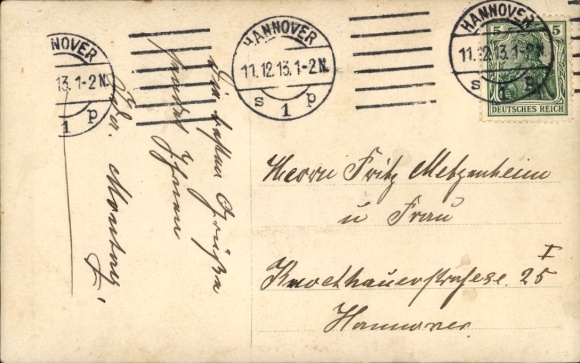 HANNOVER
11.12.13.1-2N.
s 1 p
HANNOVER
11.12.13.1-2N.
s 1 p
NNOVER
13.1-2N.
1 p
5 5
DEUTSCHES REICH
Die besten Grüße
sendet Ihnen
Herrn Fritz Metzenheim
u Frau
Knochhauerstraße 25 I
Hannover